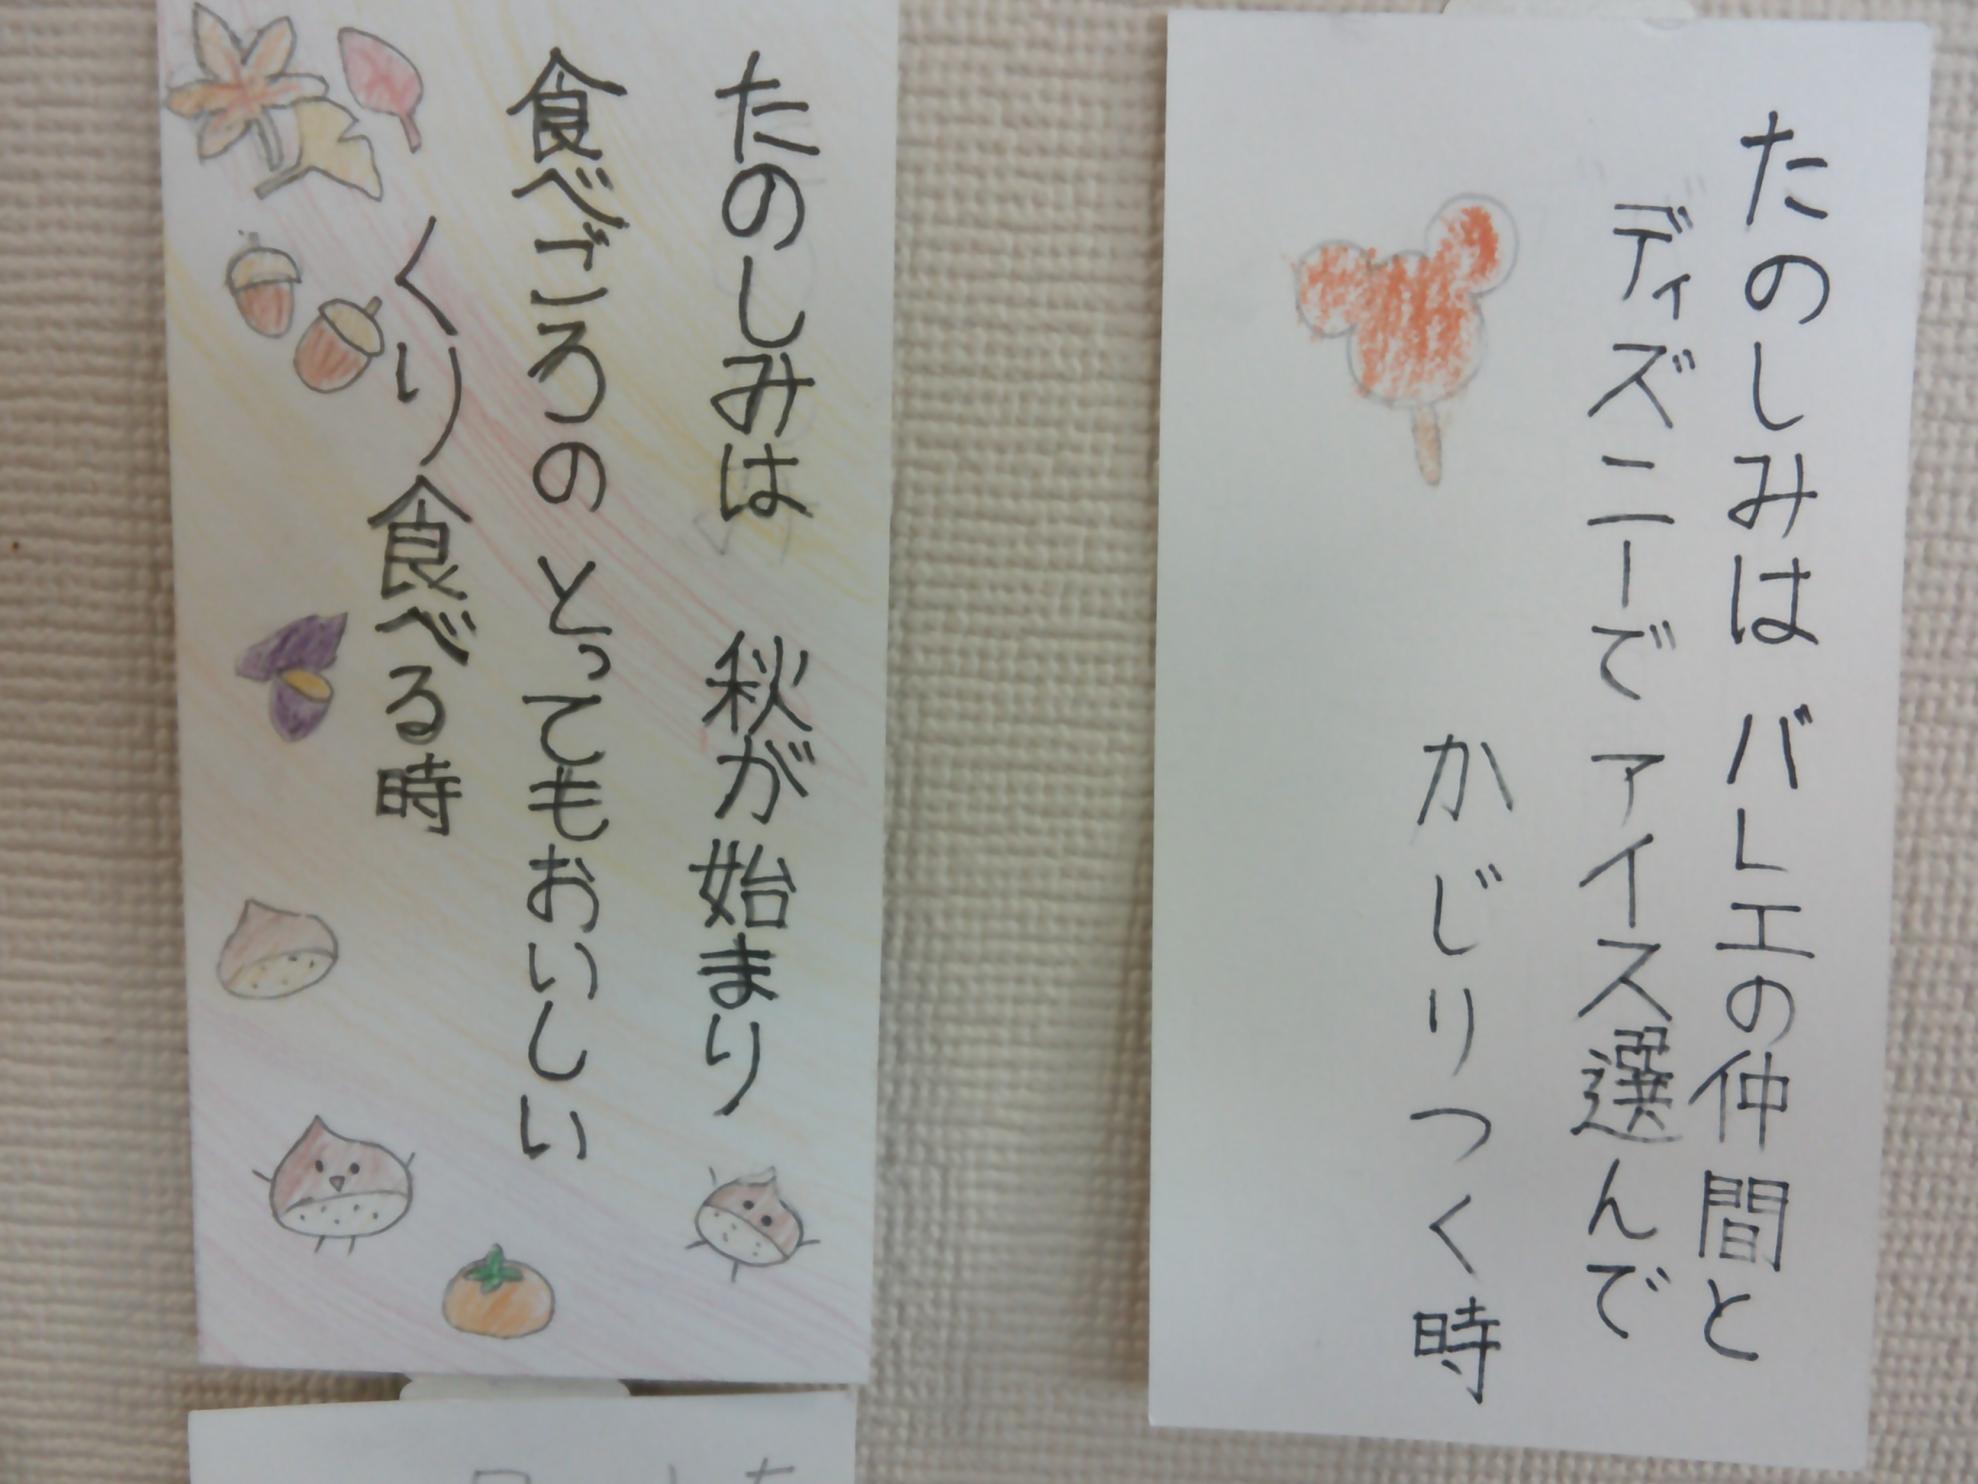 たのしみは バレエの仲間と
ディズニーで アイス選んで
かじりつく時
たのしみは 秋が始まり
食べごろの とってもおいしい
くり食べる時